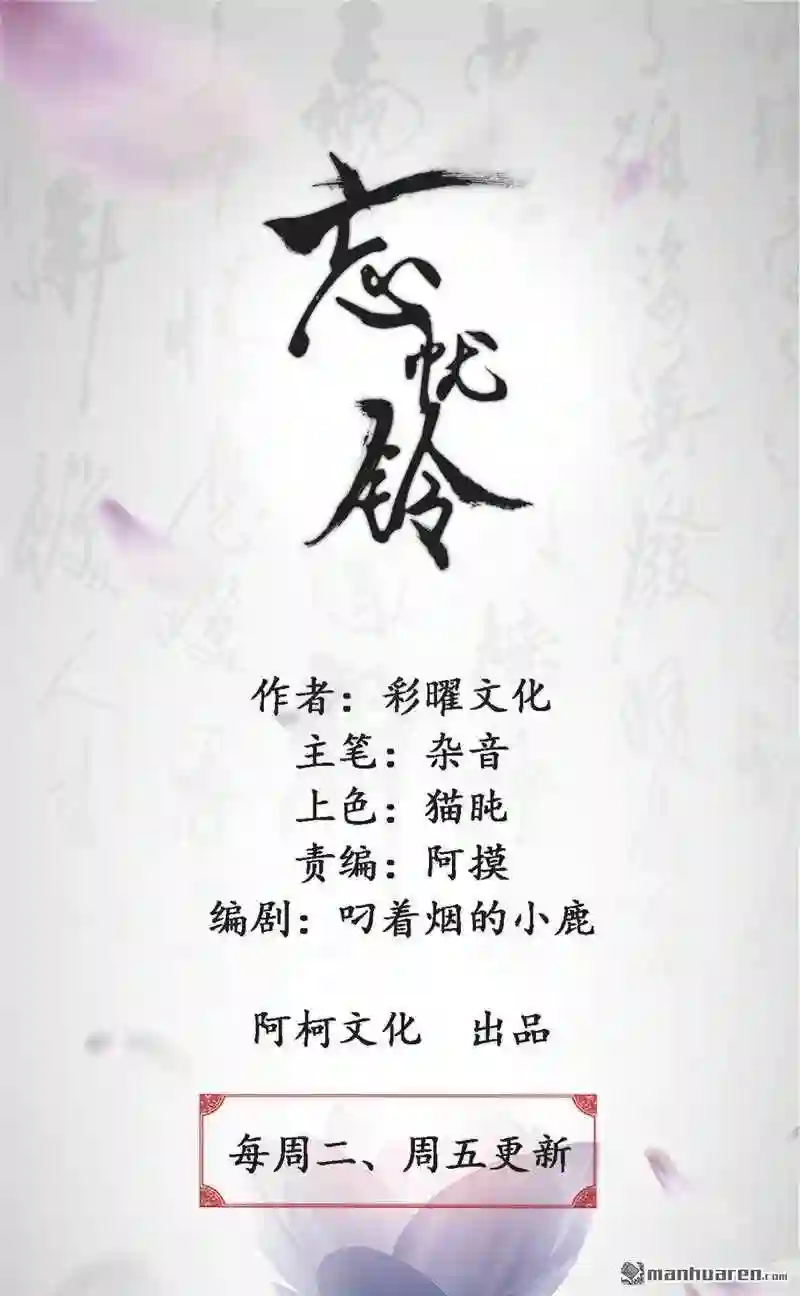 忘忧铃
作者：彩曜文化
主笔：杂音
上色：猫盹
责编：阿摸
编剧：叼着烟的小鹿
阿柯文化　出品
每周二、周五更新
manhuaren.com